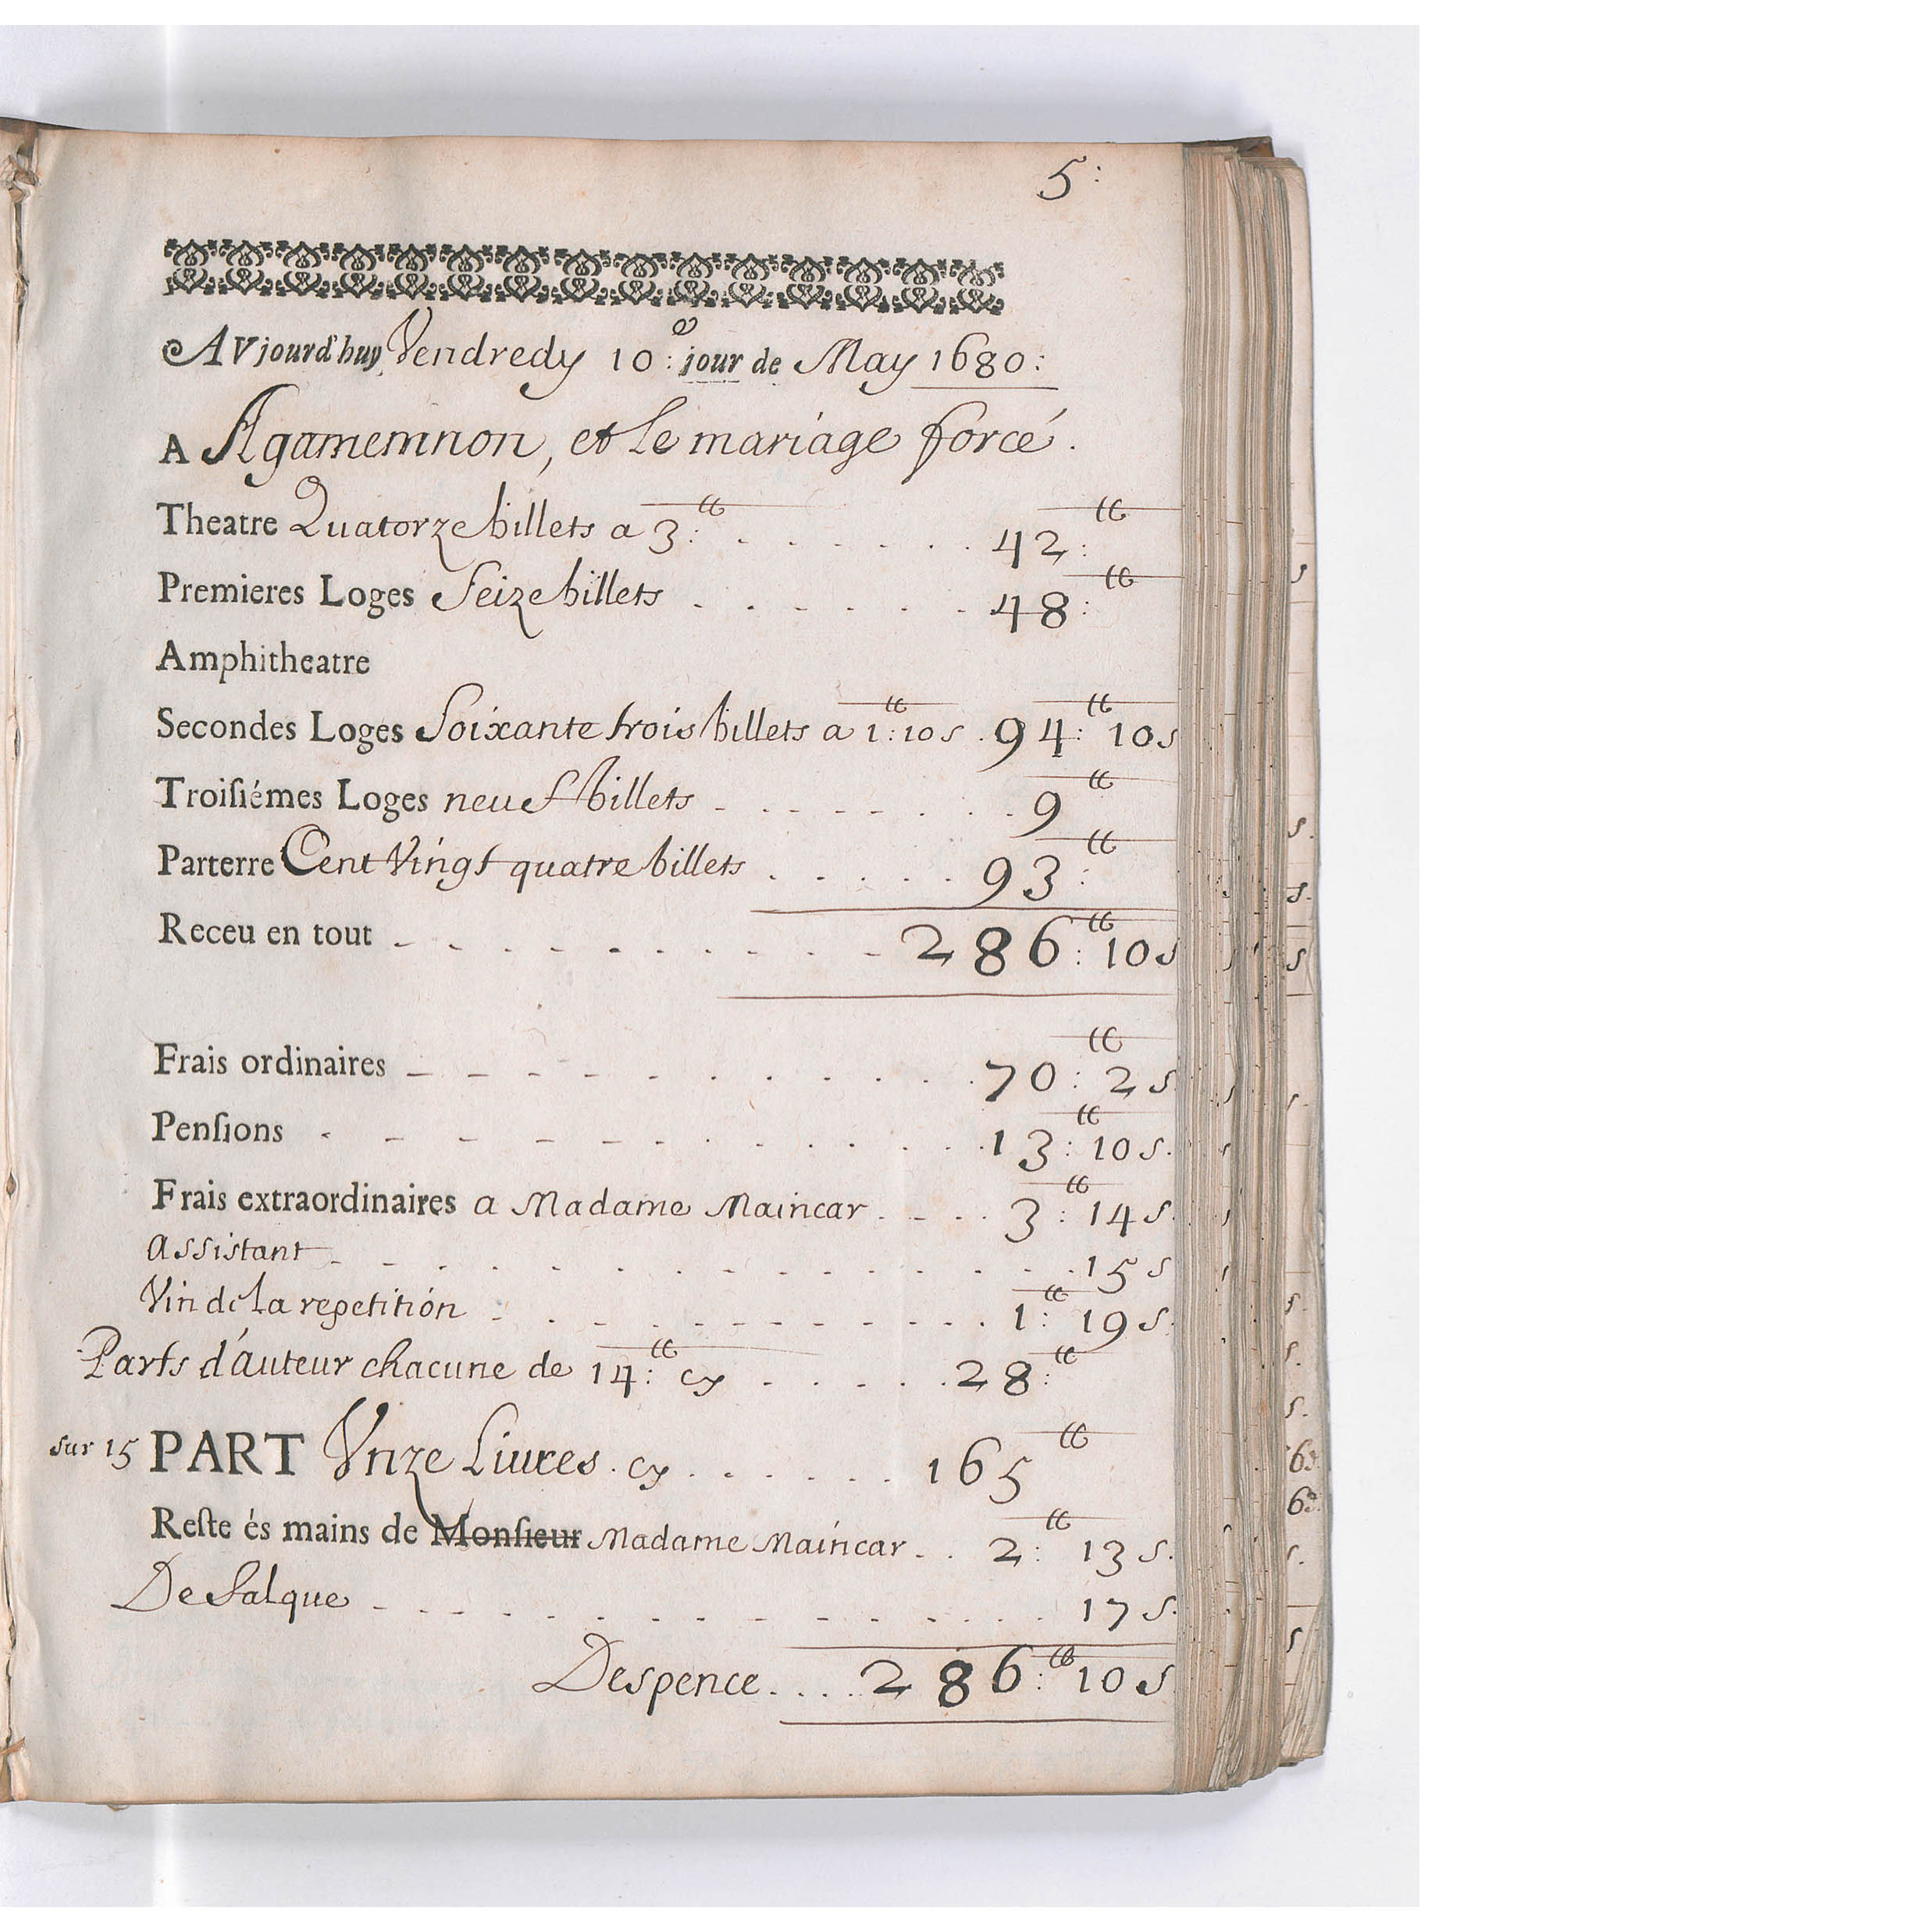 5:
AVjourd'huy Vendredy 10:e jour de May 1680:
A Agamemnon, et Le mariage forcé.
Theatre Quatorze billets a 3:tt . . . . . . 42:tt
Premieres Loges Seize billets . . . . . . 48:tt
Amphitheatre
Secondes Loges Soixante trois billets a 1:tt 10 s . 94:tt 10 s
Troiſiémes Loges neuf billets - . . - - . . . 9 tt
Parterre Cent Vingt quatre billets . . . . . 93:tt
Receu en tout - - - - - - - - - - 286:tt 10 s
Frais ordinaires - - - - - . . . . . 70:tt 2 s
Penſions - - - - - - . . . . 13:tt 10 s.
Frais extraordinaires a Madame Maincar . - . . 3:tt 14 s.
Assistant - - . . . . . . . . . . 15 s
Vin de La repetition - . . - - - - - . . 1:tt 19 s.
Parts d'auteur chacune de 14:tt cy . . . . . 28:tt
sur 15 PART Vnze Liures . cy . . . . . . 165 tt
Reſte és mains de Monſieur Madame Maincar . . 2:tt 13 s.
De Salque - - . . . . . . . . . . 17 s.
Despence . . . . 286:tt 10 s